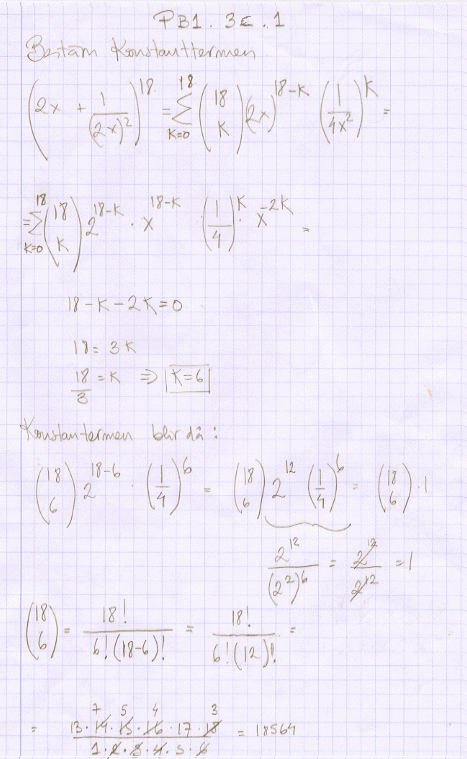 PB1. 3E. 1
Bestäm Konstanttermen
(2x + 1/(2x)²)^18 = Σ_{K=0}^{18} (18 K) (2x)^{18-K} (1/4x²)^K =
= Σ_{K=0}^{18} (18 K) 2^{18-K} · x^{18-K} (1/4)^K · x^{-2K} =
18 - K - 2K = 0
18 = 3K
18/3 = K ⇒ K=6
Konstantermen blir då:
(18 6) 2^{18-6} · (1/4)^6 = (18 6) 2^{12} (1/4)^6 = (18 6) · 1
2^{12}/(2²)^6 = 2^{12}/2^{12} = 1
(18 6) = 18!/6!(18-6)! = 18!/6!(12)! =
7 5 4 3
= 13 · 14 · 15 · 16 · 17 · 18 / 1 · 2 · 3 · 4 · 5 · 6 = 18564